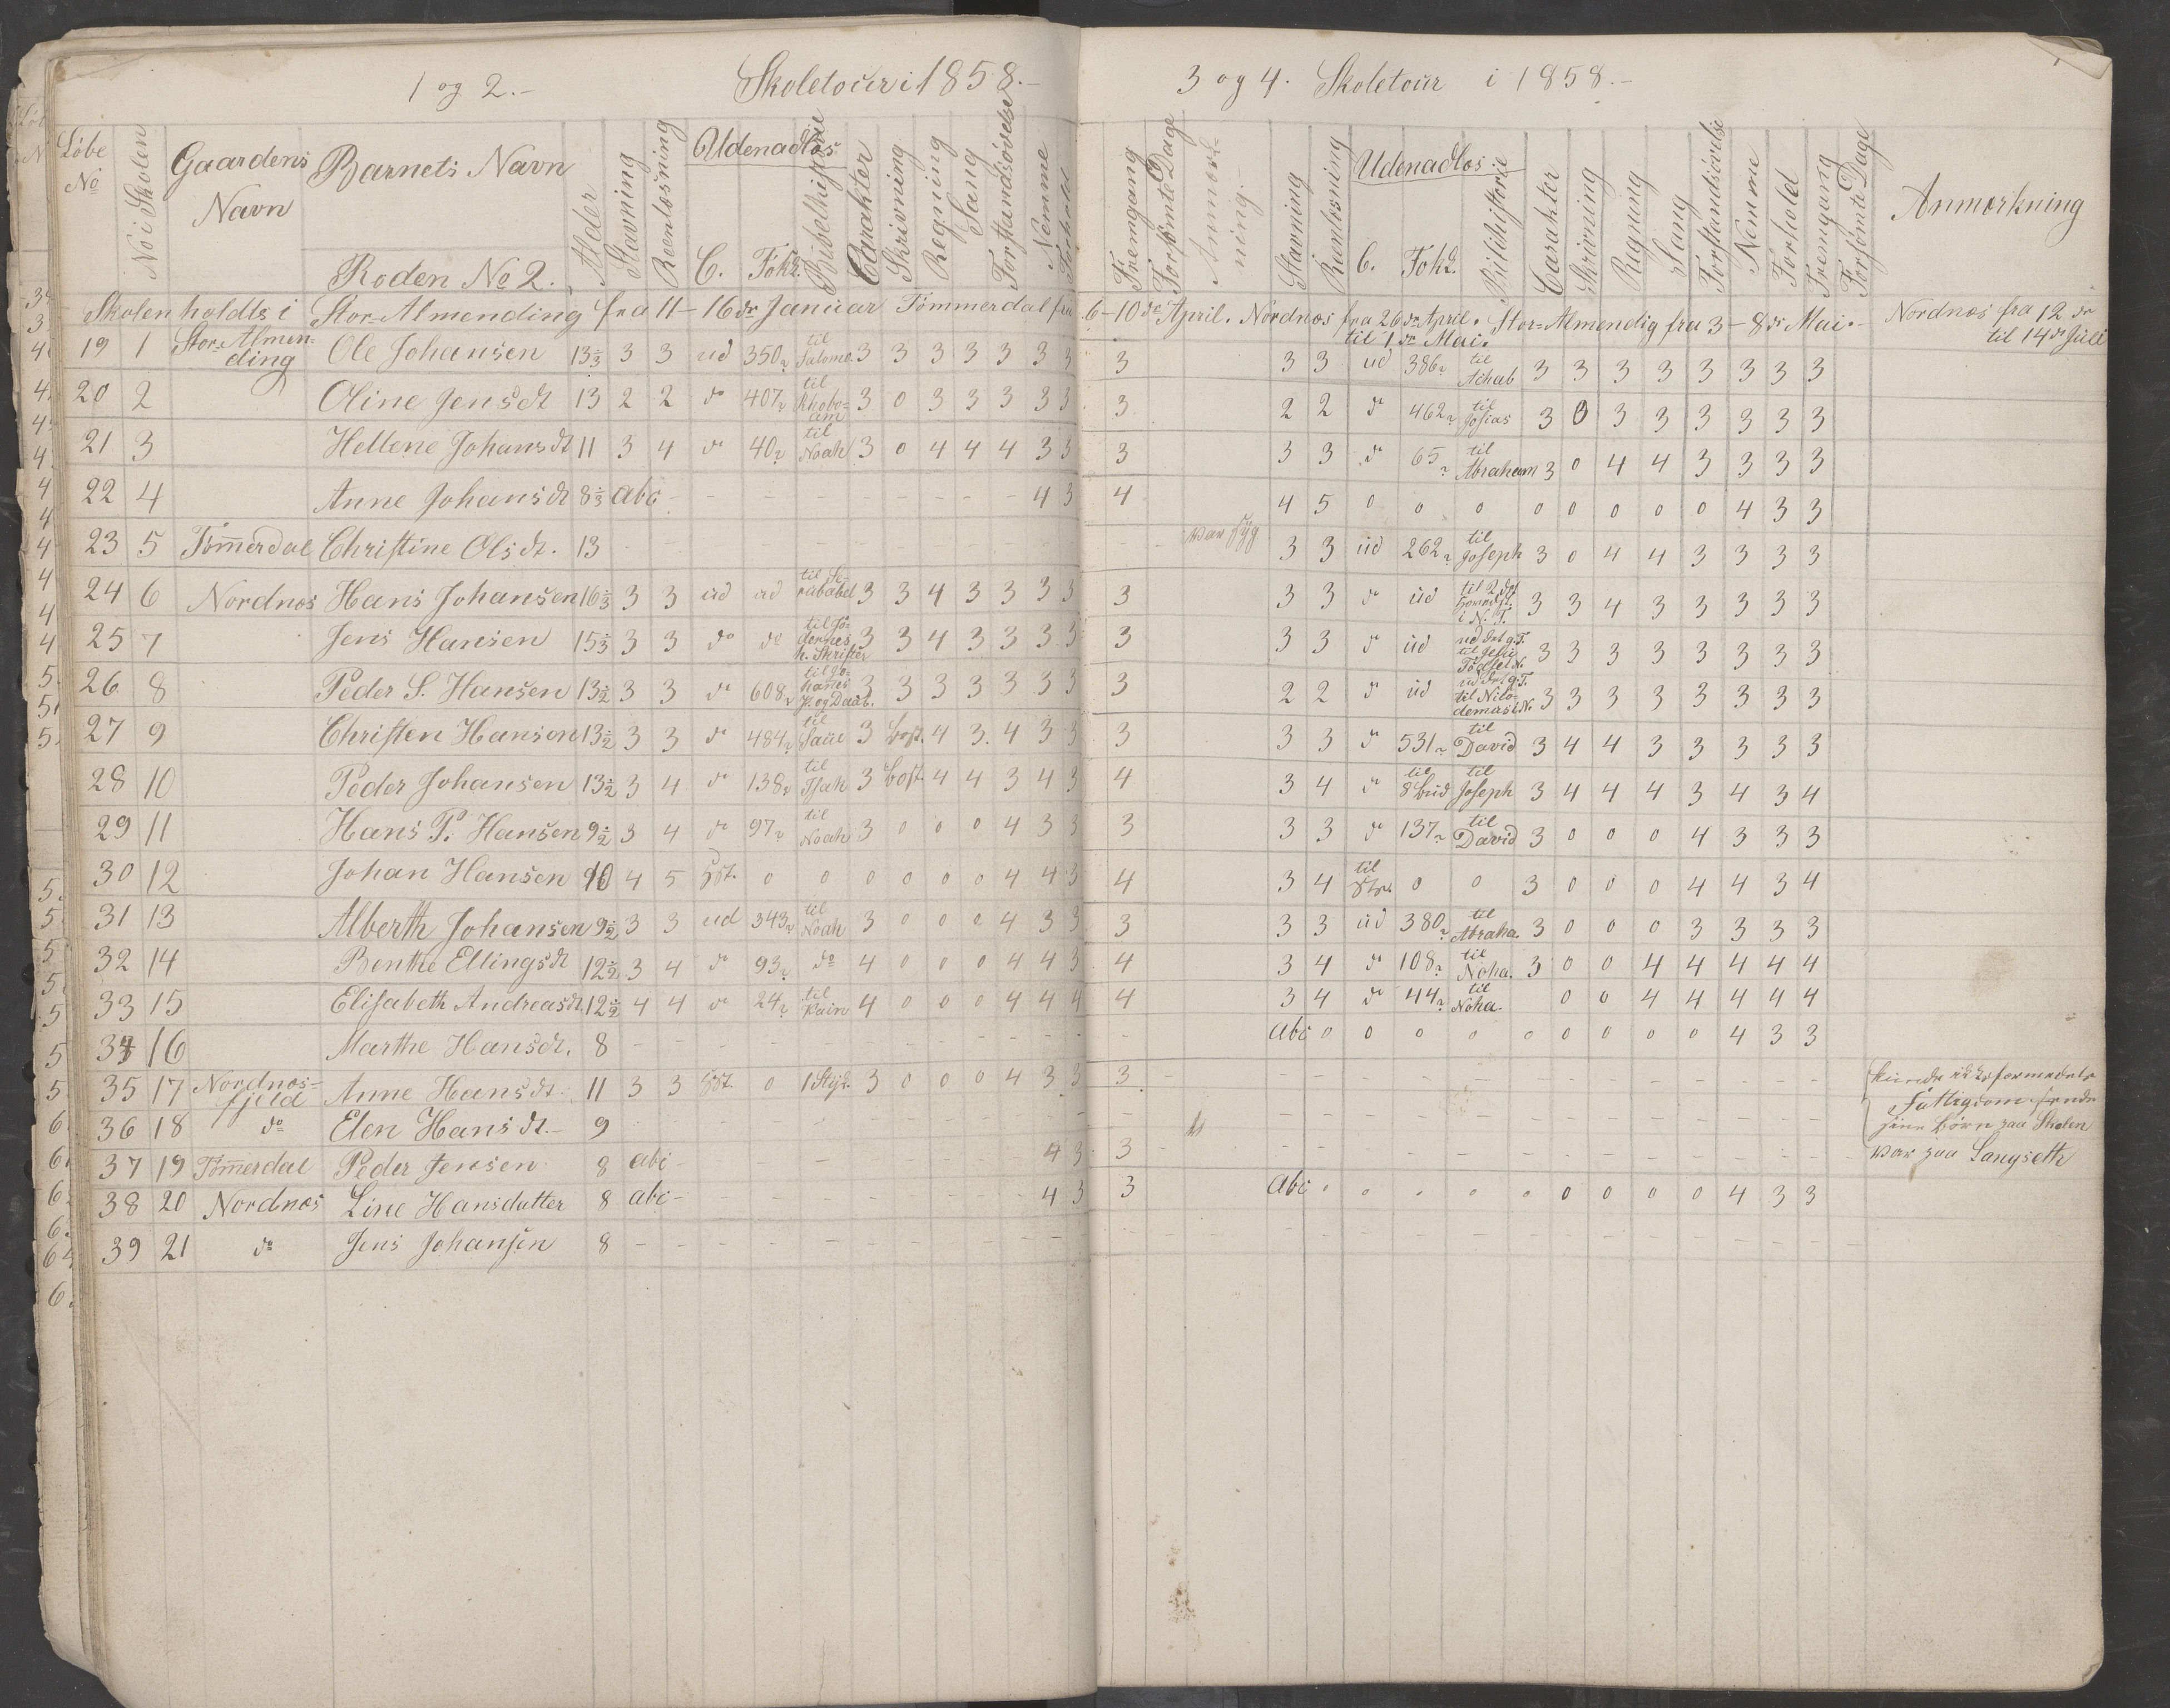 1 og 2.- Skoletour i 1858.-
Löbe No No i Skolen Gaardens Navn Barnets Navn Alder Stavning Reenlæsning Udenadlæs C. Fokl. Bibelhistorie Carakter Skrivning Regning Sang Forstandsövelse Nemme Forhold
Roden No 2.
Skolen holdtes i Stor-Almending fra 11-16 dr Januar Tömmerdal fra
19 1 Stor-Almending Ole Johansen 13⅔ 3 3 ud 350 til Salomo. 3 3 3 3 3 3 3
20 2 Oline Jensdt 13 2 2 do 407 til Rhoboam 3 0 3 3 3 3 3
21 3 Hellene Johansdt 11 3 4 do 40 til Noah 3 0 4 4 4 3 3
22 4 Anne Johansdt 8⅔ abc - - - - - - - - - 4 3
23 5 Tömmerdal Christine Olsdt. 13 - - - - - -
24 6 Nordnæs Hans Johansen 16⅓ 3 3 ud ud til Serubabel 3 3 4 3 3 3 3
25 7 Jens Hansen 15⅓ 3 3 do do til Jödernes h. Skrifter 3 3 4 3 3 3 3
26 8 Peder S. Hansen 13½ 3 3 do 608 til Johannes P. og Daab. 3 3 3 3 3 3 3
27 9 Christen Hansen 13½ 3 3 do 484 til Saul 3 Bogst. 4 3. 4 3 3
28 10 Peder Johansen 13½ 3 4 do 138 til Isak 3 Bogst. 4 4 3 4 3
29 11 Hans P. Hansen 9½ 3 4 do 97 til Noah 3 0 0 0 4 3 3
30 12 Johan Hansen 10 4 5 0 0 0 0 0 0 4 4 3
31 13 Alberth Johansen 9½ 3 3 ud 343 til Noah 3 0 0 0 4 3 3
32 14 Benthe Ellingsdt 12½ 3 4 do 93 do 4 0 0 0 4 4 3
33 15 Elisabeth Andreasdt. 12½ 4 4 do 24 til Kain 4 0 0 0 4 4 4
34 16 Marthe Hansdt. 8 - - - - - - - - -
35 17 Nordnæs-fjeld Anne Hansdt. 11 3 3 0 1 Styk. 3 0 0 0 4 3 3
36 18 do Elen Hansdt.- 9 - - - - - -
37 19 Tömmerdal Peder Jensen 8 abc - - - - - - 4 3
38 20 Nordnæs Line Hansdatter 8 abc - - - - - - 4 3
39 21 do Jens Johansen 8 - - - - - - - - -
3 og 4. Skoletour i 1858.-
Fremgang Forsömte Dage Anmærkning.- Stavning Reenlæsning Udenadlæs C. Fokl. Bibelhistorie Carakter Skrivning Regning Sang Forstandsövelse Nemme Forhold Fremgang Forsömte Dage Anmærkning
6-10 de April. Nordnæs fra 26 de April. til 1 dr Mai. Stor-Almendig fra 3-8 dr Mai.- Nordnæs fra 12 dr til 14 dr Juli
3 3 3 ud 386 til Achab 3 3 3 3 3 3 3 3
3 2 2 do 462 til Josias 3 0 3 3 3 3 3 3
3 3 3 do 65 til Abraham 3 0 4 4 3 3 3 3
4 4 5 0 0 0 0 0 0 0 0 4 3 3
- var syg 3 3 ud 262 til Joseph 3 0 4 4 3 3 3 3
3 3 3 do ud til 2 det i N. T. 3 3 4 3 3 3 3 3
3 3 3 do ud ud det g. T. til Jesu Födsel N. 3 3 3 3 3 3 3 3
3 2 2 do ud ud det g. T. til Nikodemus i N. 3 3 3 3 3 3 3 3
3 3 3 do 531 til David 3 4 4 3 3 3 3 3
4 3 4 do til 8 Bud til Joseph 3 4 4 4 3 4 3 4
3 3 3 do 137 til David 3 0 0 0 4 3 3 3
4 3 4 til 0 0 3 0 0 0 4 4 3 4
3 3 3 ud 380 til Abraha. 3 0 0 0 3 3 3 3
4 3 4 do 108 til Noha. 3 0 0 4 4 4 4 4
4 3 4 do 44 til Noha. 0 0 4 4 4 4 4
- abc 0 0 0 0 0 0 0 0 0 4 3 3
3 - - - - - - - - - - - - kunde ikke formedels
- - - - - - - - - - - - Fattigdom sende sine Börn paa Skolen
3 - - - - - - - - - - - - var paa Langseth
3 abc 0 0 0 0 0 0 0 0 0 4 3 3
- - - - - - - - - - - -